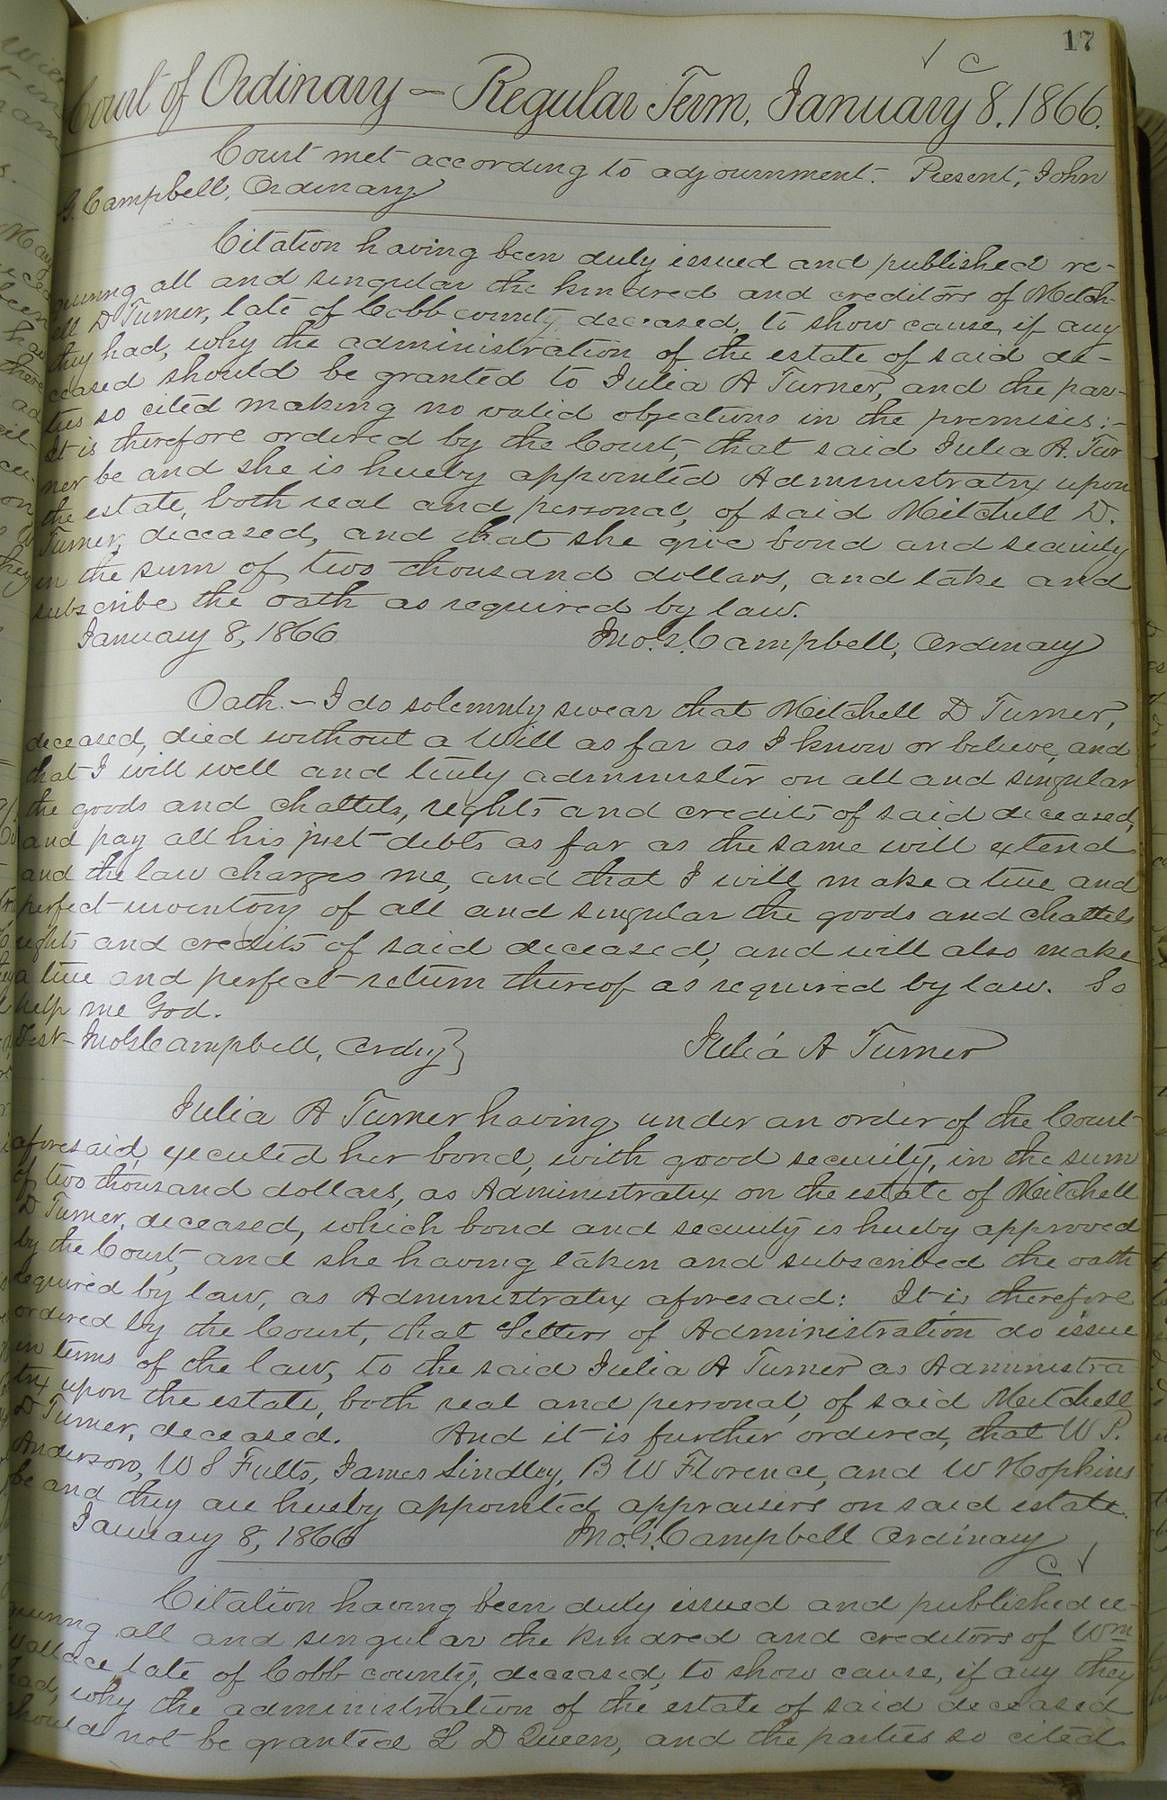 17
Court of Ordinary — Regular Term, January 8, 1866.
Court met according to adjournment. Present, John
G. Campbell, Ordinary
Citation having been duly issued and published re-
quiring all and singular the kindred and creditors of Mitch-
ell D Turner, late of Cobb county, deceased, to show cause, if any
they had, why the administration of the estate of said de-
ceased should be granted to Julia A Turner, and the par-
ties so cited making no valid objections in the premises:-
It is therefore ordered by the Court, that said Julia A. Tur
ner be and she is hereby appointed Administratrix upon
the estate, both real and personal, of said Mitchell D.
Turner, deceased, and that she give bond and security
in the sum of two thousand dollars, and take and
subscribe the oath as required by law.
January 8, 1866 Jno. G. Campbell, Ordinary
Oath.— I do solemnly swear that Mitchell D Turner,
deceased, died without a Will as far as I know or believe, and
that I will well and truly administer on all and singular
the goods and chattels, rights and credits of said deceased,
and pay all his just debts as far as the same will extend
and the law charges me, and that I will make a true and
perfect inventory of all and singular the goods and chattels
rights and credits of said deceased, and will also make
a true and perfect return thereof as required by law. So
help me God.
Test- Jno G Campbell, Ordy} Julia A Turner
Julia A Turner having under an order of the Court
aforesaid, executed her bond, with good security, in the sum
of two thousand dollars, as Administratrix on the estate of Mitchell
D Turner, deceased, which bond and security is hereby approved
by the Court, and she having taken and subscribed the oath
required by law, as Administratrix aforesaid: It is therefore
ordered by the Court, that Letters of Administration do issue
in terms of the law, to the said Julia A Turner as Administra
trix upon the estate, both real and personal, of said Mitchell
D Turner, deceased. And it is further ordered, that W P.
Anderson, W S Fults, James Lindley, B W Florence, and W Hopkins
be and they are hereby appointed appraisers on said estate.
January 8, 1866 Jno. G. Campbell Ordinary
Citation having been duly issued and published re-
quiring all and singular the kindred and creditors of Wm
Wallace late of Cobb county, deceased, to show cause, if any they
had, why the administration of the estate of said deceased
should not be granted L D Queen, and the parties so cited